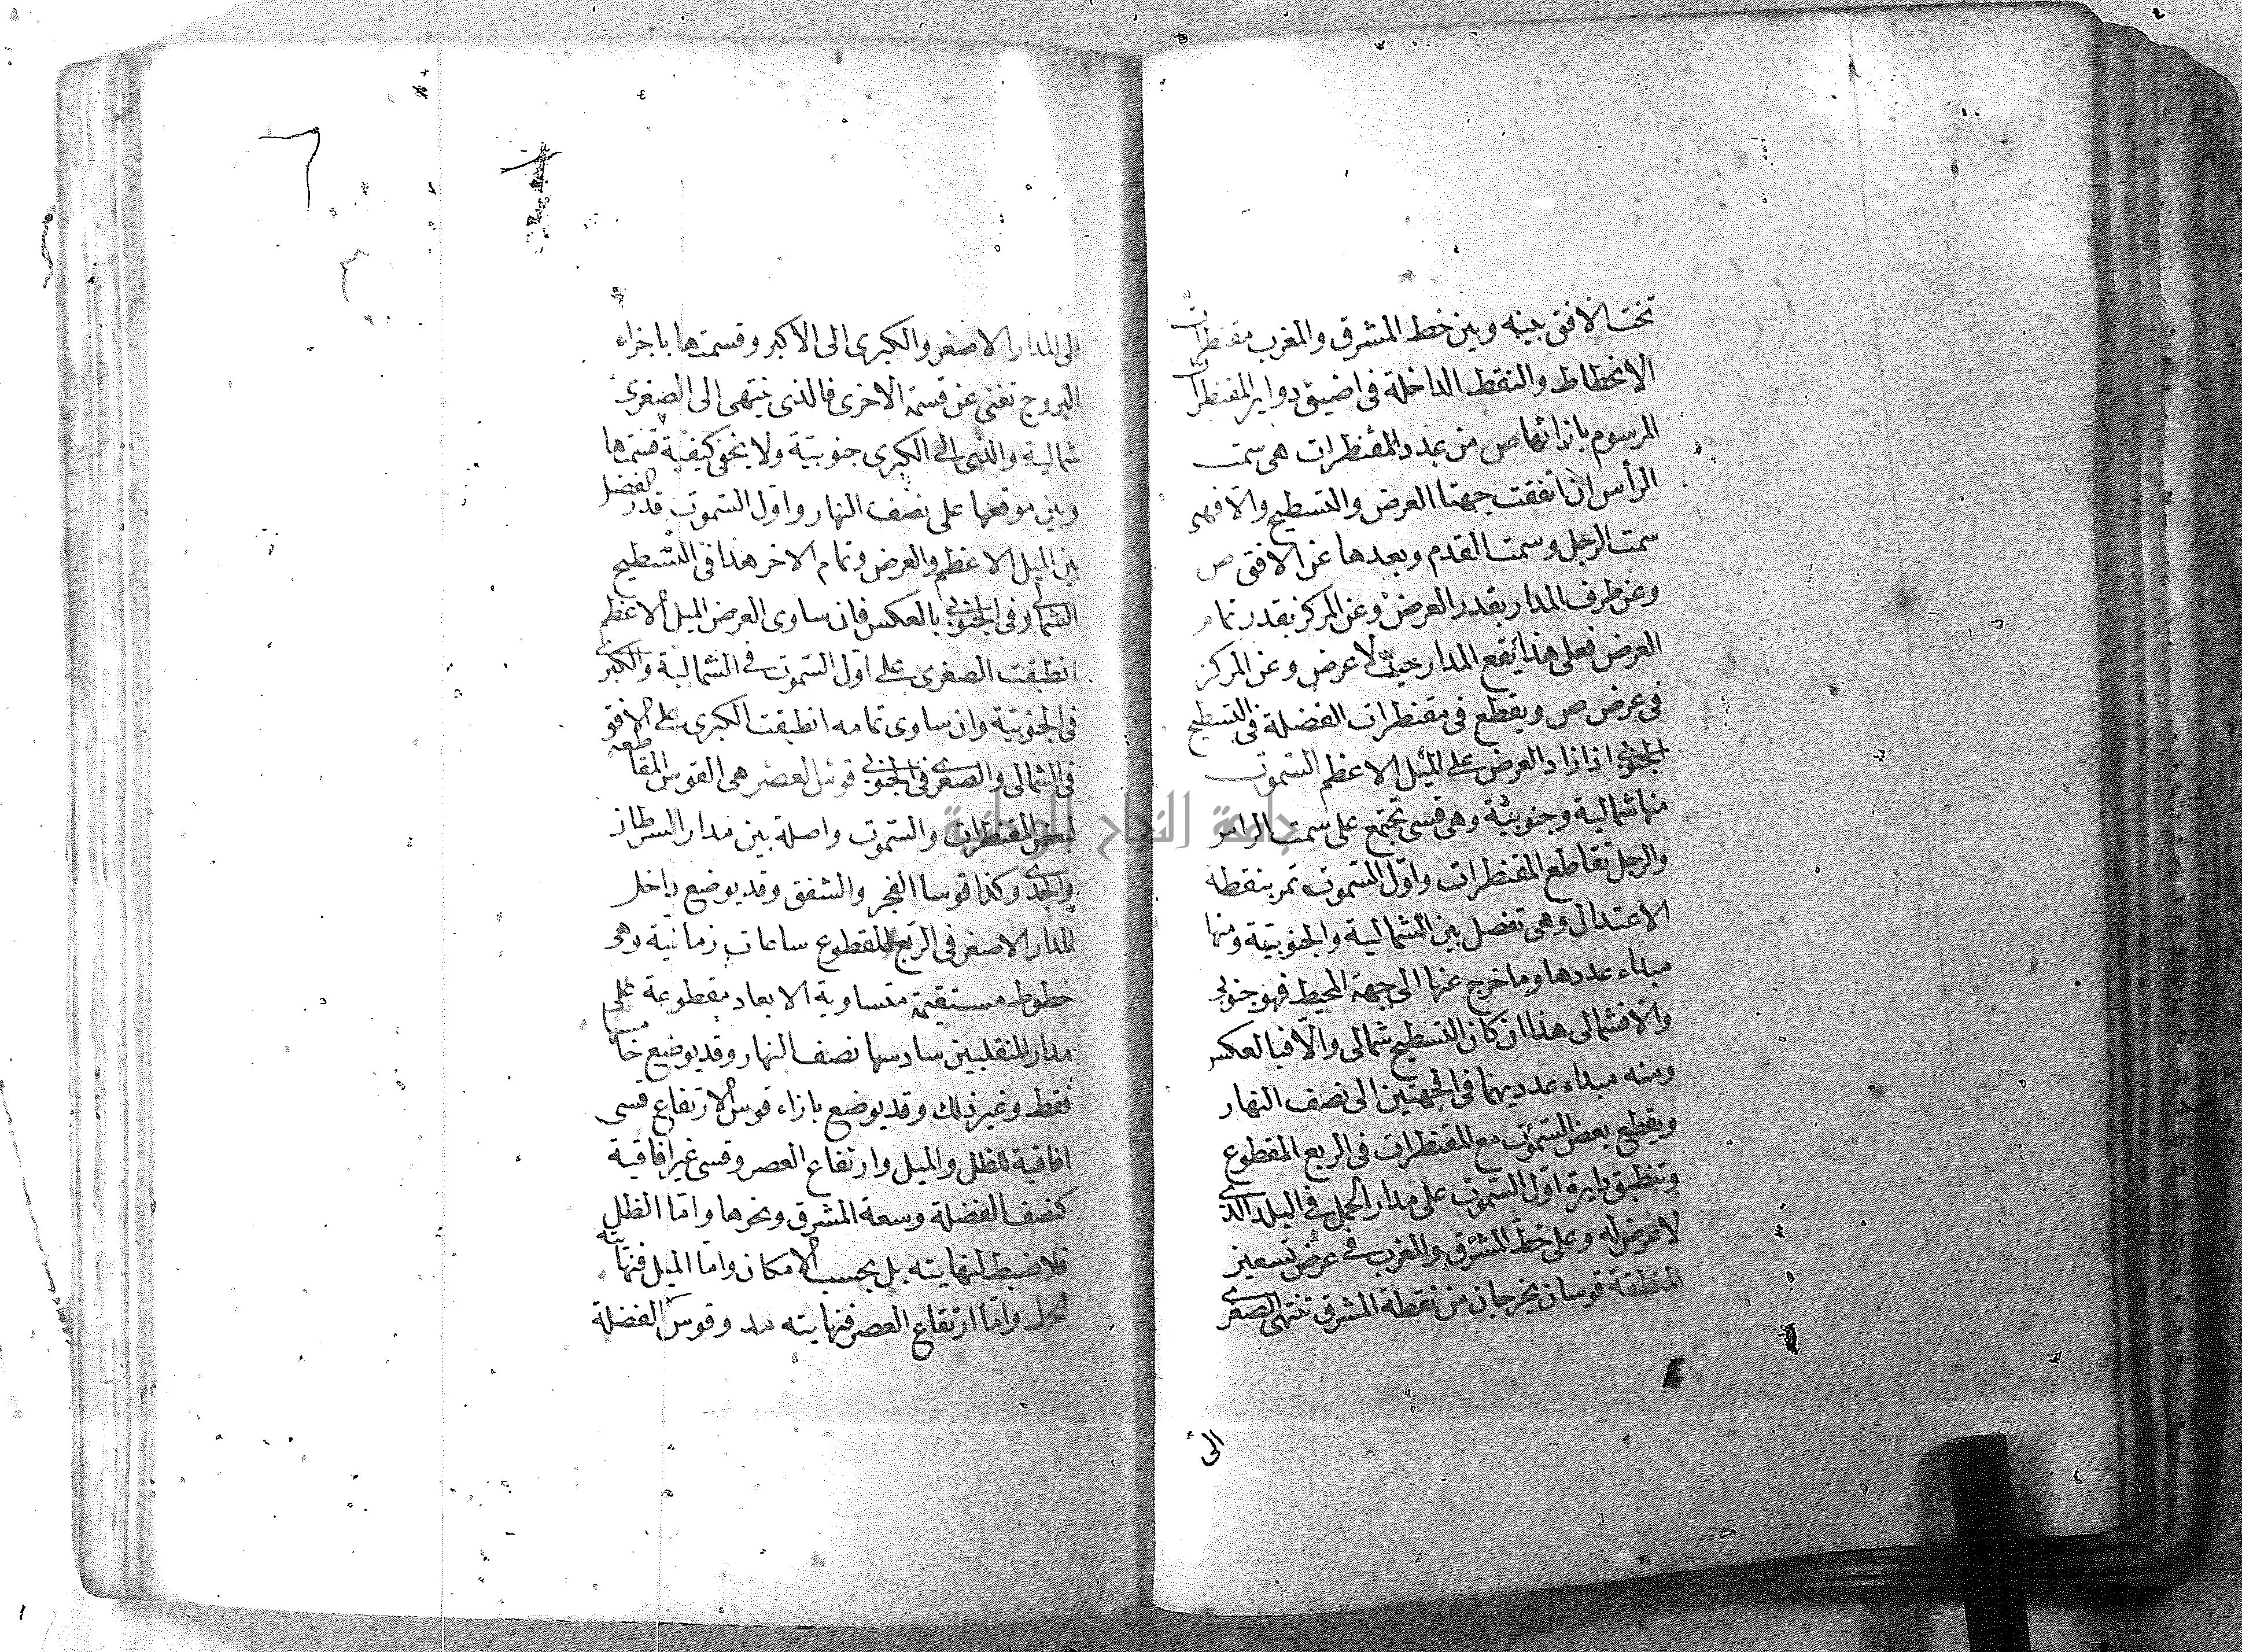 تحت الافق بينه وبين خط المشرق والمغرب مقنطرات
الانحطاط والنقط الداخلة في اضيق دواير المقنطرات
المرسوم بازائها ص من عدد المقنطرات هي سمت
الرأس ان اتفقت جهتا العرض والتسطيح والا فهي
سمت الرجل وسمت القدم وبعدها عن الافق ص
وعن طرف المدار بقدر العرض وعن المركز بقدر تمام
العرض فعلى هذا يقع المدار حيث لا عرض وعن المركز
في عرض ص ويقطع في مقنطرات الفضلة في التسطيح
الجنوبي اذا زاد العرض على الميل الاعظم السموت
منها شمالية وجنوبية وهي قسي تجتمع على سمت الراس
والرجل تقاطع المقنطرات واول السموت تمر بنقطه
الاعتدال وهي تفصل بين الشمالية والجنوبية ومنها
مبداء عددها وما خرج عنها الى جهة المحيط فهو جنوبي
والا فشمالي هذا ان كان التسطيح شمالي والا فبالعكس
ومنه مبداء عدديهما في الجهتين الى نصف النهار
ويقطع بعض السموت مع المقنطرات في الربع المقطوع
وتنطبق دايرة اول السموت على مدار الحمل في البلد الذي
لا عرض له وعلى خط المشرق والمغرب في عرض تسعين
المنطقة قوسان يخرجان من نقطة المشرق تنتهي الصغرى
الى
الى المدار الاصغر والكبرى الى الاكبر وقسمتها باجزاء
البروج تغني عن قسمة الاخرى فالذي ينتهي الى الصغرى
شمالية والذي الى الكبرى جنوبية ولا يخفى كيفية قسمتها
وبين موقعها على نصف النهار واول السموت قدر الفضل
بين الميل الاعظم والعرض وتمام الاخر هذا في التسطيح
الشمالي وفي الجنوبي بالعكس فان ساوى العرض الميل الاعظم
انطبقت الصغرى على اول السموت في الشمالية والكبرى
في الجنوبية وان ساوى تمامه انطبقت الكبرى على الافق
في الشمالي والصغرى في الجنوبي قوس العصر هي القوس المقاطعه
لبعض المقنطرات والسموت واصلة بين مدار السرطان
والجدي وكذا قوسا الفجر والشفق وقد يوضع داخل
المدار الاصغر في الربع المقطوع ساعات زمانية وهي
خطوط مستقيمة متساوية الابعاد مقطوعة على
مدار المنقلبين سادسها نصف النهار وقد يوضع خامسها
فقط وغير ذلك وقد يوضع بازاء قوس الارتفاع قسي
افاقية للظل والميل وارتفاع العصر وقسي غير افاقية
كنصف الفضلة وسعة المشرق ونحوها واما الظل
فلا ضبط لنهايته بل بحسب الامكان واما الميل فنهايته
واما ارتفاع العصر فنهايته مد وقوس الفضلة
جامعة النجاح الوطنية